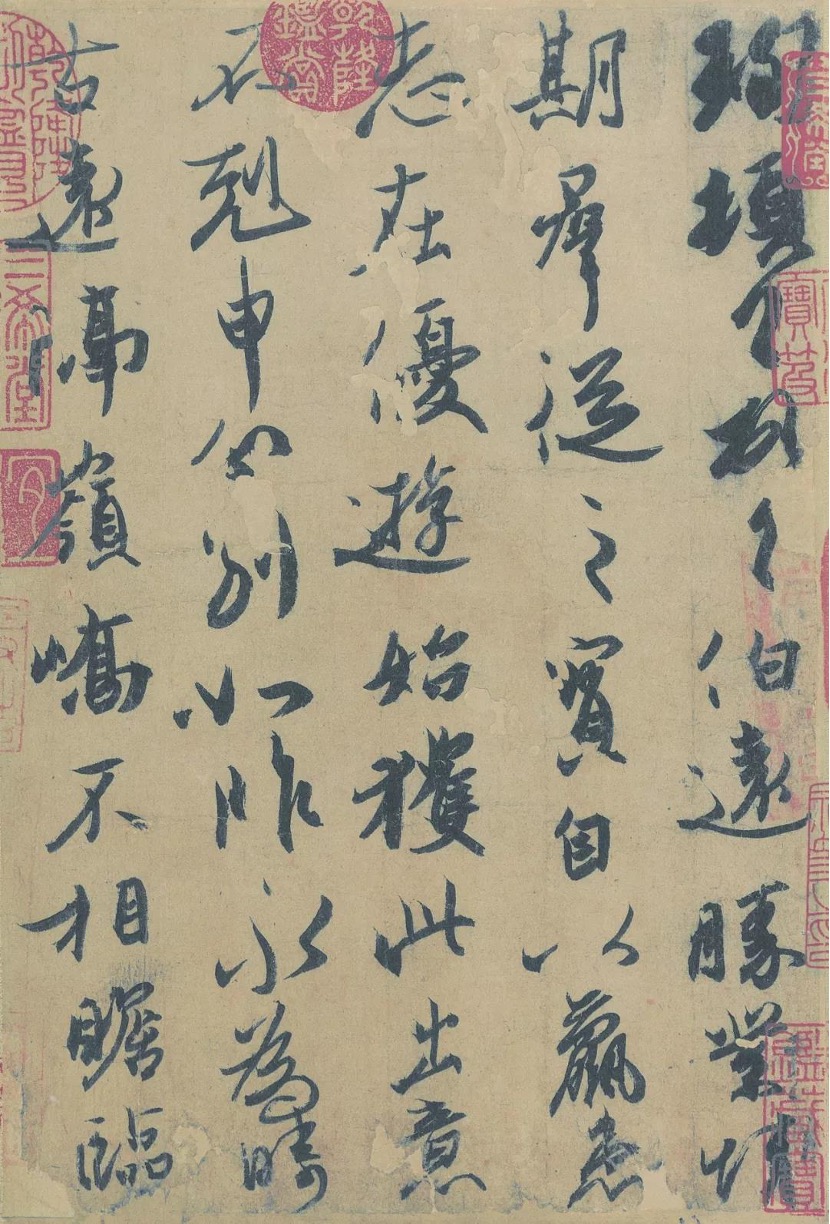 珣頓首頓首伯遠勝業情
期羣從之寶自以羸患
志在優遊始獲此出意
不剋申分別如昨永為疇
古遠隔嶺嶠不相瞻臨
乾隆鑑賞
三希堂